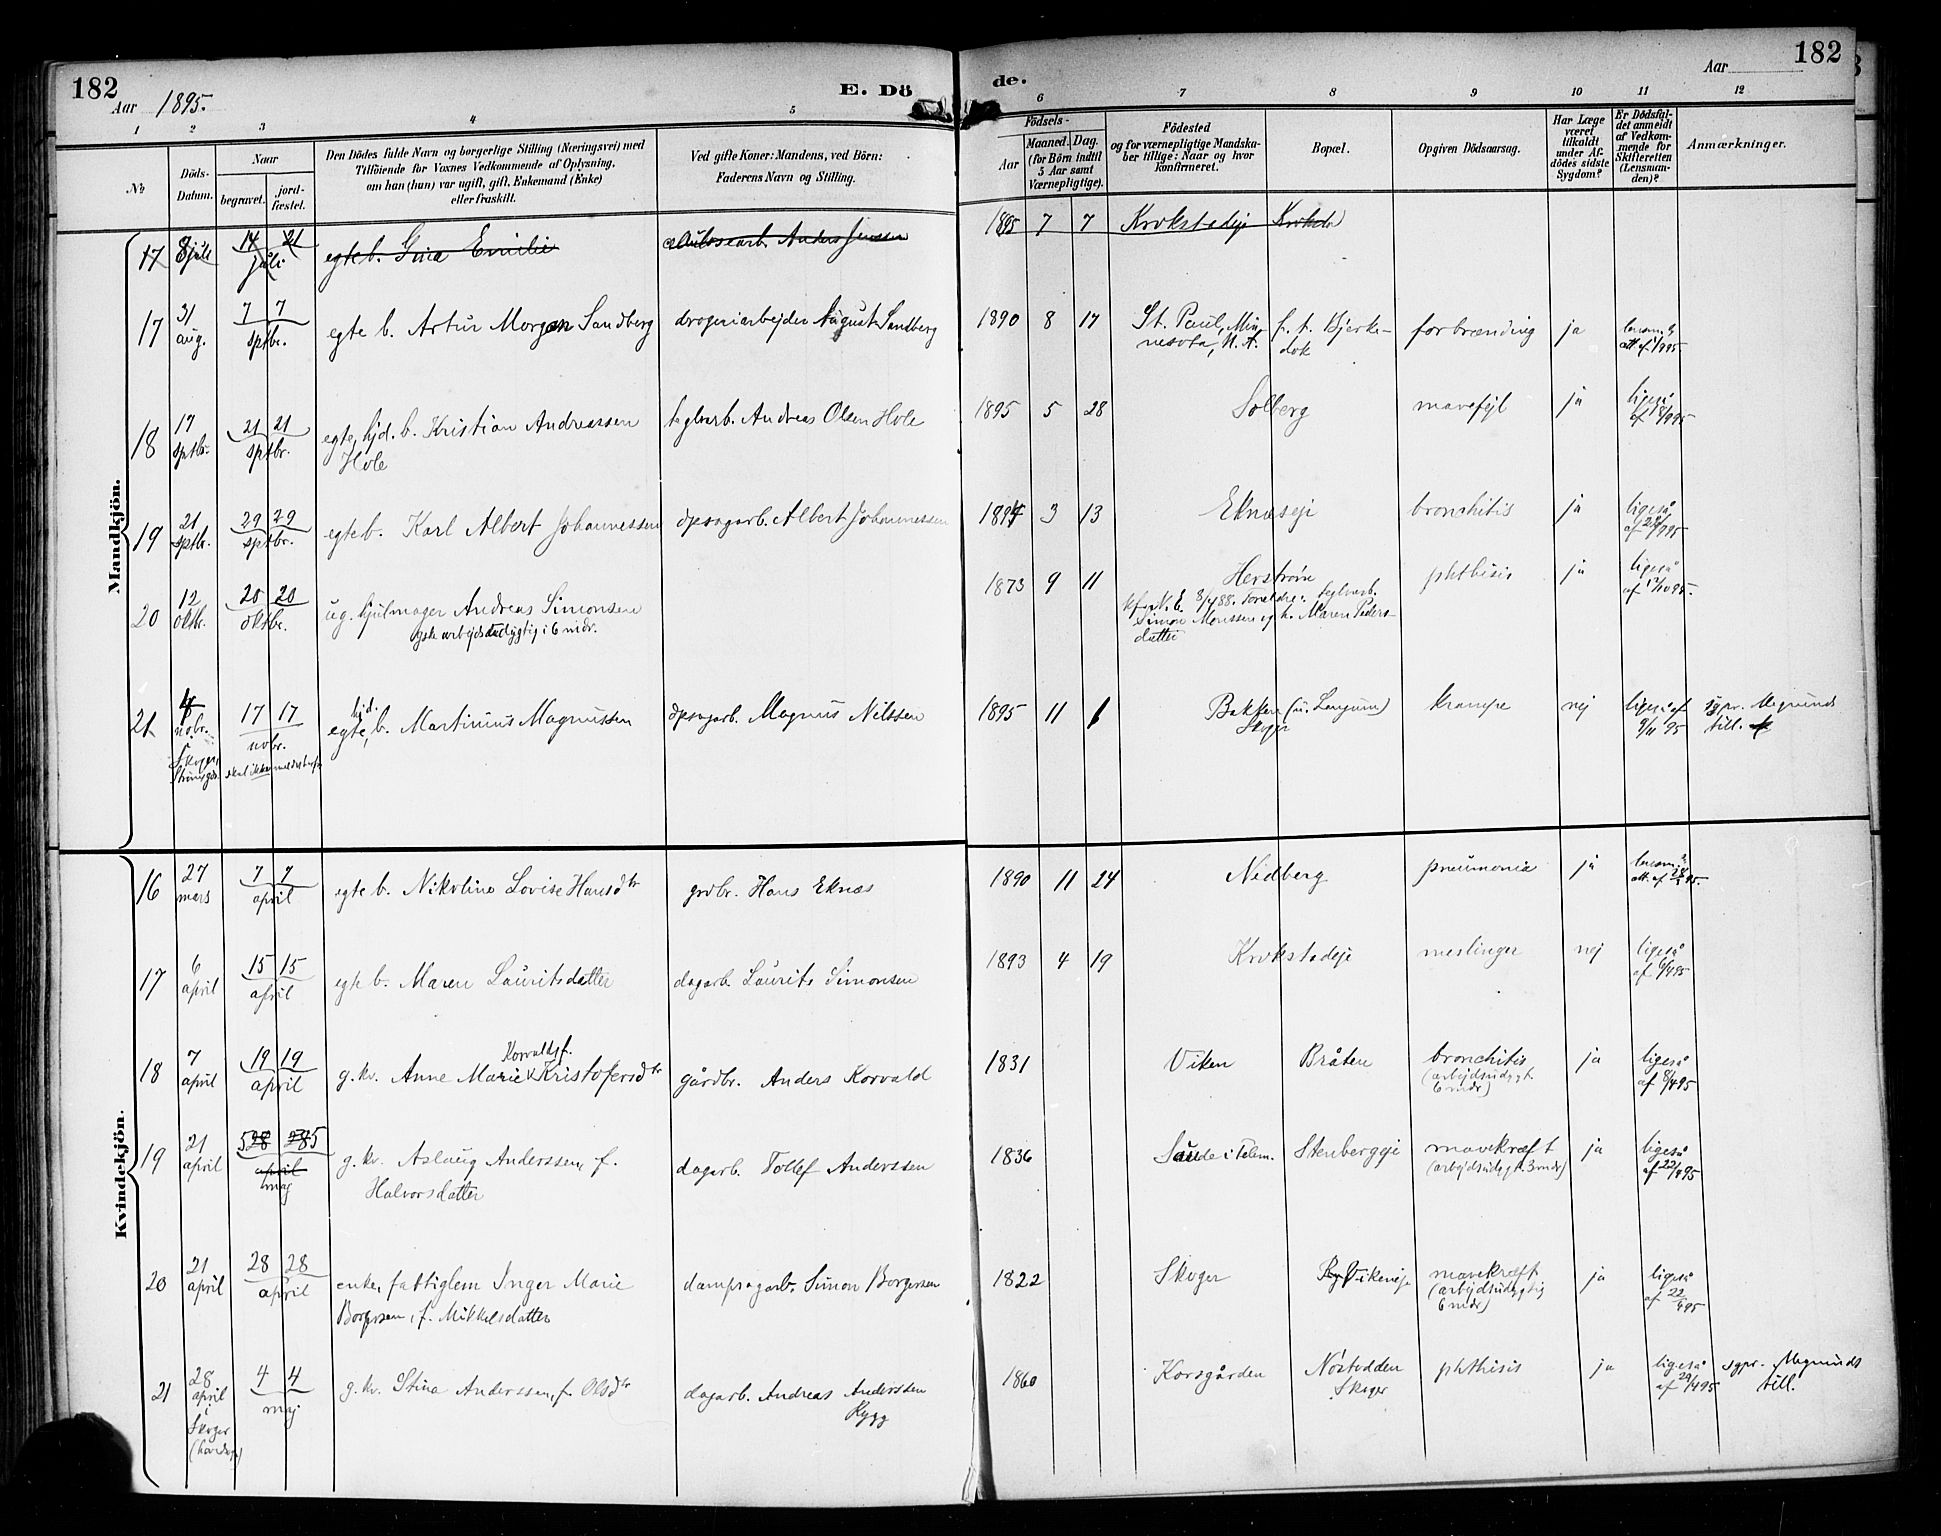 182
Aar 1895.
E. Dö
de.
Aar
182
1
2
3
4
5
6
7
8
9
10
11
12
No
Döds-
Datum.
Naar
begravet.
jord-
fæstet.
Den Dödes fulde Navn og borgerlige Stilling (Næringsvei) med
Tilföiende for Voxnes Vedkommende af Oplysning,
om han (hun) var ugift, gift, Enkemand (Enke)
eller fraskilt.
Ved gifte Koner: Mandens, ved Börn:
Faderens Navn og Stilling.
Födsels-
Aar
Maaned.
Dag.
(for Börn indtil
5 Aar samt
Værnepligtige).
Födested
og for værnepligtige Mandska-
ber tillige: Naar og hvor
konfirmeret.
Bopæl.
Opgiven Dödsaarsag.
Har Læge
været
tilkaldt
under Af-
dödes sidste
Sygdom?
Er Dödsfal-
det anmeldt
af Vedkom-
mende for
Skifteretten
(Lensman-
den)?
Anmærkninger.
Mandkjön.
17 8 juli 14 21 juli egte b. Gina Emilie Anders Jenssen 1895 7 7 Krokstadeje
17 31 aug. 7 7 sptbr. egte b. Artur Morgan Sandberg drogeriarbejder August Sandberg 1890 8 17 St. Paul, Min-
nesota, N. A. f. t. Bjerke-
dok forbrænding ja
18 17 sptbr. 21 21 sptbr. egte, hjd. b. Kristian Andreassen
Hole teglverb. Andreas Olsen Hole 1895 5 28 Solberg mavefejl ja ligeså
af 18/9 95
19 21 sptbr. 29 29 sptbr. egte b. Karl Albert Johannessen dpsagarb. Albert Johannessen 1894 3 13 Eknæseje bronchitis ja ligeså
af 23/9 95
20 12 oktbr. 20 20 oktbr. ug. hjulmager Andreas Simonsen
arbejdsudygtig i 6 mdr. 1873 9 11 Herstrøm
Simon Monssen og h. Maren Peders-
datter phthisis ja ligeså
af 12/10 95.
21 4 nobr. 17 17 nobr. hjd.
egte, b. Martinius Magnussen dpsagarb. Magnus Nilssen 1895 11 1 Bakken
Skoger krampe nej ligeså af
9/11 95 sgpr. Megrunds
till.
Kvindekjön.
16 27 mars 7 7 april egte b. Nikoline Lovise Hansdtr grdbr. Hans Eknæs 1890 11 24 Nidberg pneumonia ja
17 6 april 15 15 april egte b. Maren Lauritsdatter dagarb. Laurits Simonsen 1893 4 19 Krokstadeje meslinger nej ligeså
af 6/4 95
18 7 april 19 19 april Korvald, f.
g. kv. Anne Marie Kristofersdtr gårdbr. Anders Korvald 1831 Viken Bråten bronchitis
(arbejdsudygt.
6 mdr) ja ligeså
af 8/4 95
19 21 april 5 28 28 5 april
maj g. kv. Aslaug Anderssen, f.
Halvorsdatter dagarb. Tollef Anderssen 1836 Saude i Telem. Stenbergeje mavekræft
(arbejdsudygt. 3 mdr) ja ligeså
af 22/4 95
20 21 april 28 28 april enke, fattiglem Inger Marie
Borgersen, f. Mikkelsdatter dampsagarb. Simon Borgersen 1822 Skoger Vikeneje mavekræft
(arbejdsudygtig
6 mdr) ja ligeså
af 22/4 95
21 28 april
i
Skoger 4 4 maj g. kv. Stina Anderssen, f. Olsdtr dagarb. Andreas Anderssen
Rygg 1860 Korsgården Nøstodden
Skoger phthisis ja ligeså
af 29/4 95 sgpr. Megrunds
till.